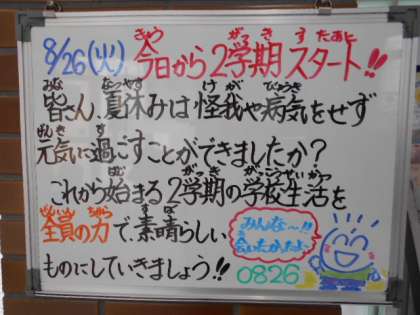 8/26(火) 今日から2学期スタート!!
皆さん、夏休みは怪我や病気をせず
元気に過ごすことができましたか?
これから始まる2学期の学校生活を
全員の力で、素晴らしい
ものにしていきましょう!!
みんな〜!!
会いたかったよ〜
0826